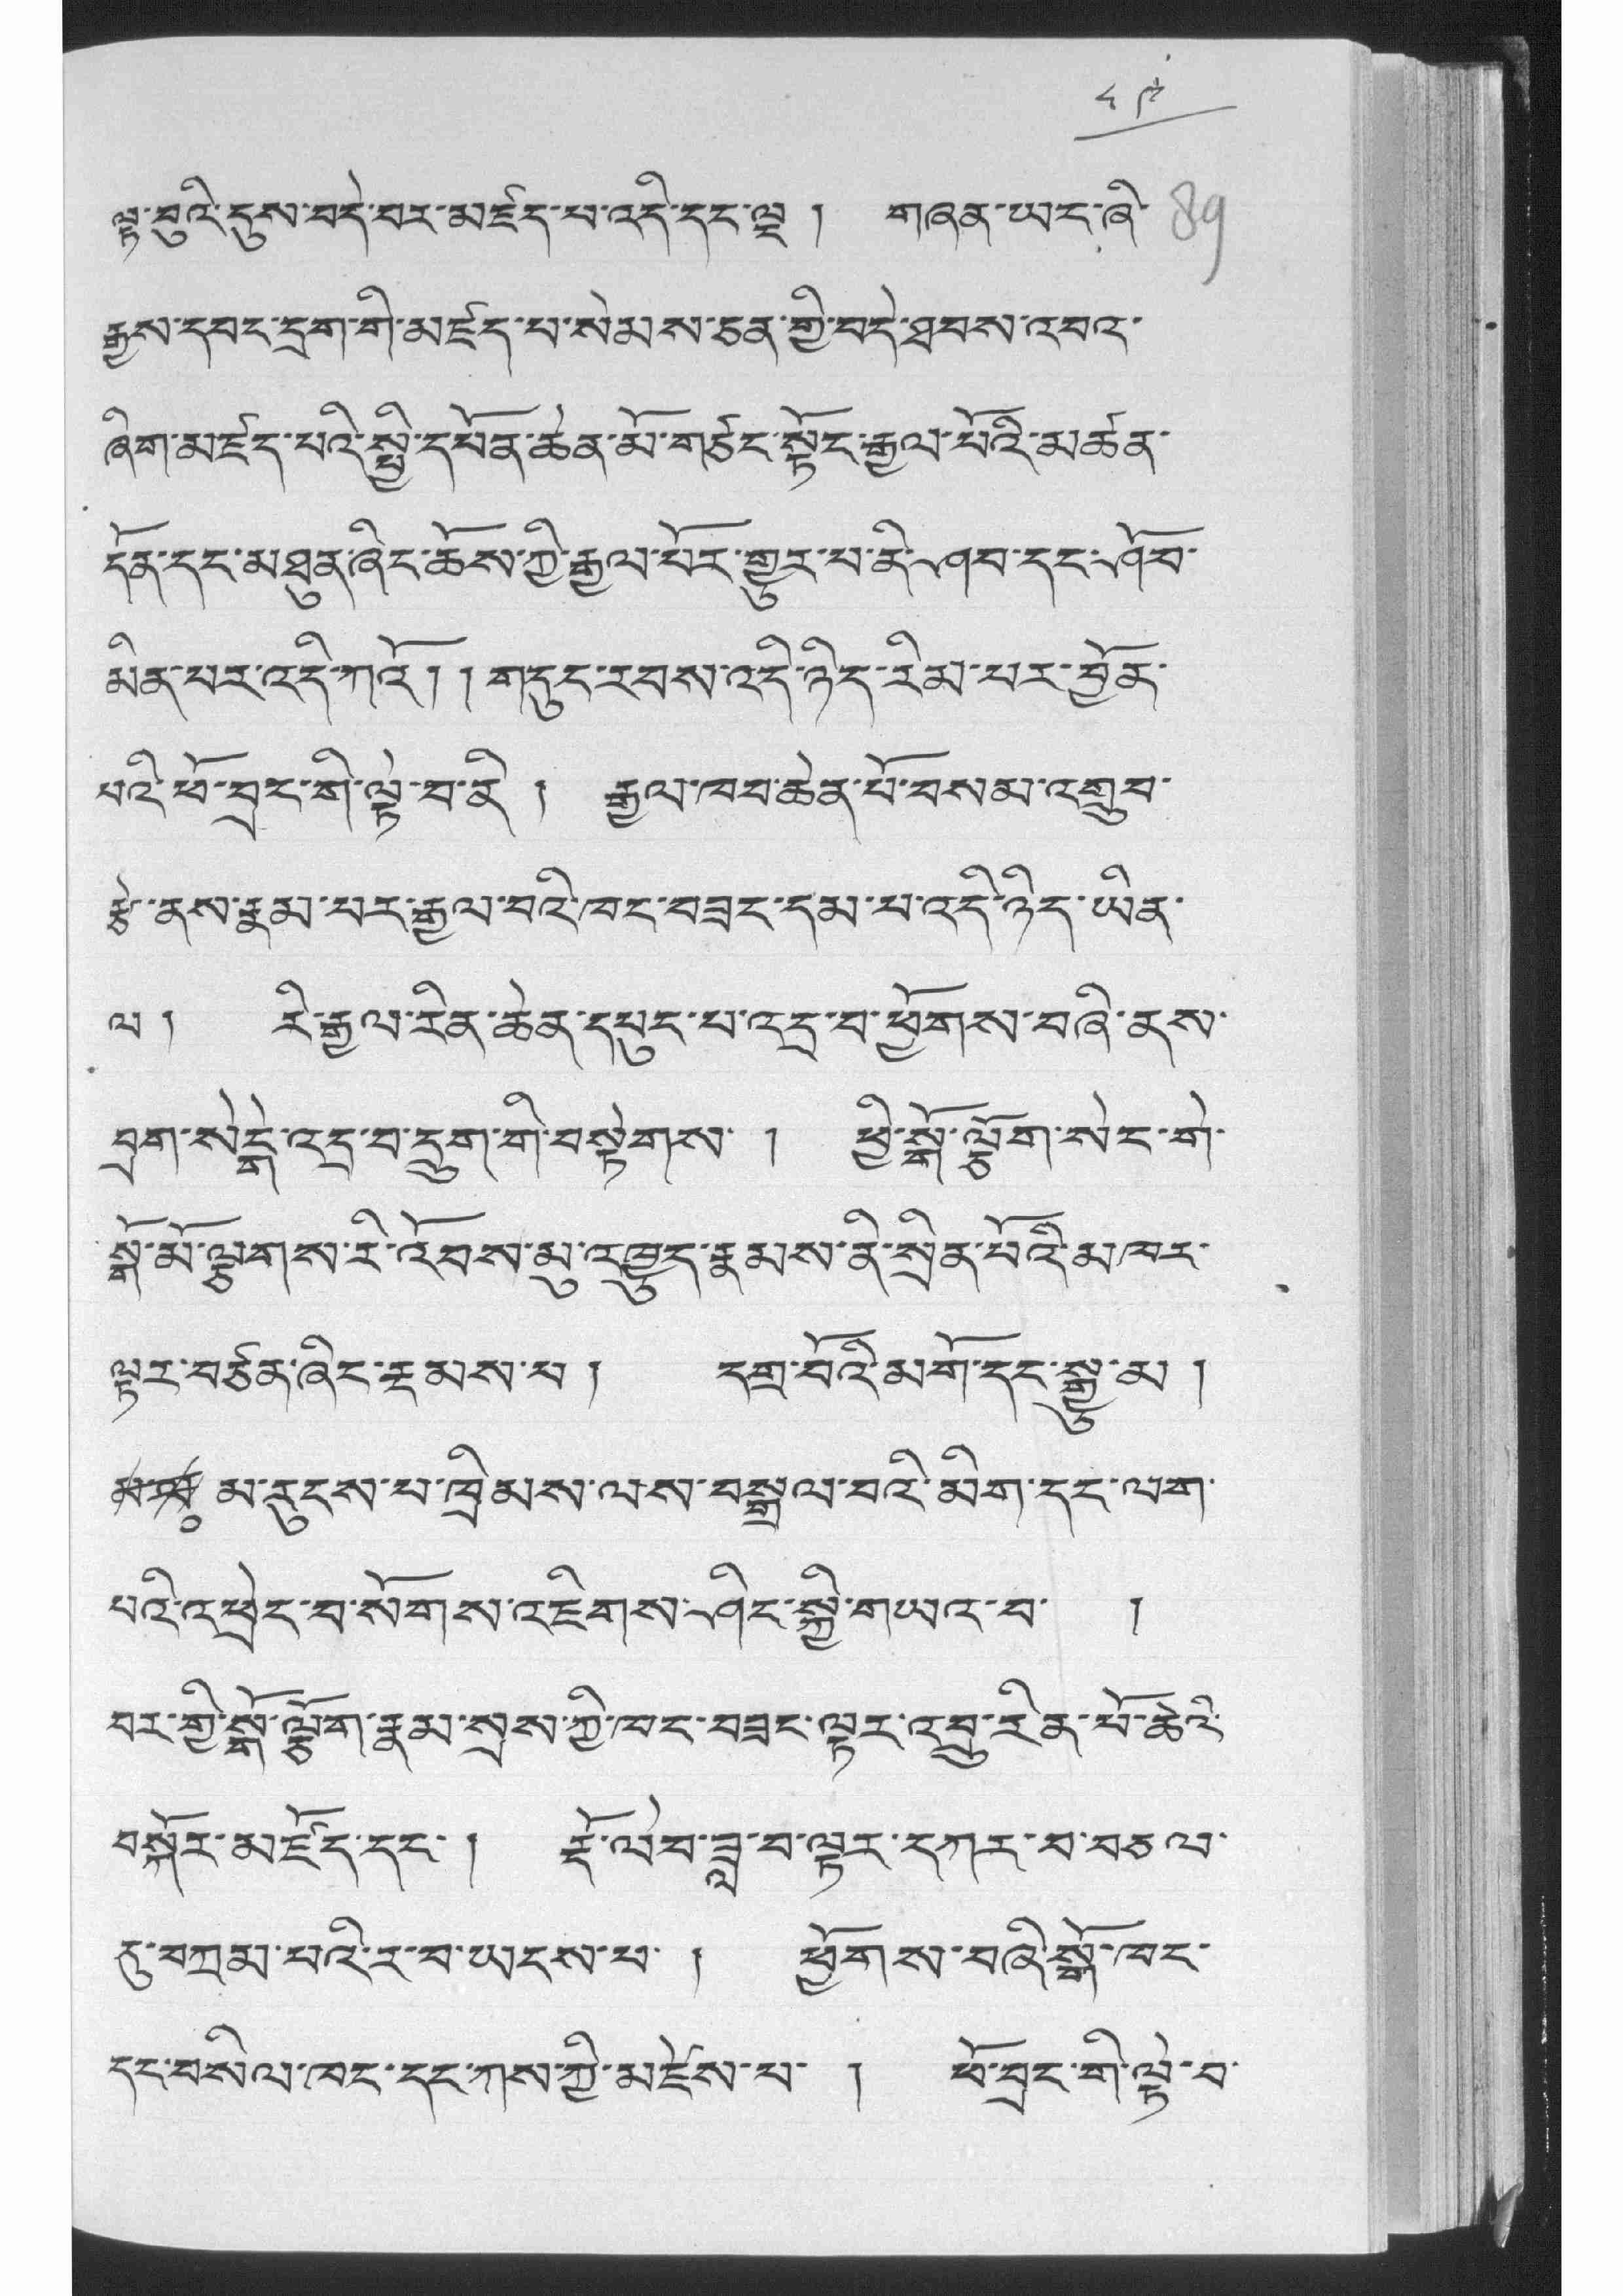 ༨༩
ལྟ་བུའི་དུས་བདེ་བར་མཛད་པ་འདི་དང་ལྔ །   གཞན་ཡང་ཞི་ 89
རྒྱས་དབང་དྲག་གི་མཛད་པ་སེམས་ཅན་གྱི་བདེ་ཐབས་འབའ་
ཞིག་མཛད་པའི་སྤྱི་དཔོན་ཆེན་མོ་གཙང་སྟོད་རྒྱལ་པོའི་མཚན་
དོན་དང་མཐུན་ཞིང་ཆོས་ཀྱི་རྒྱལ་པོར་གྱུར་པ་ནི་ཤབ་དང་ཤོབ་
མིན་པར་འདི་ཀའོ། །གདུང་རབས་འདི་ཉིད་རིམ་པར་བྱོན་
པའི་ཕོ་བྲང་གི་ལྟེ་བ་ནི །   རྒྱལ་ཁབ་ཆེན་པོ་བསམ་འགྲུབ་
རྩེ་ནས་རྣམ་པར་རྒྱལ་བའི་ཁང་བཟང་དམ་པ་འདི་ཉིད་ཡིན་
ལ །   རི་རྒྱལ་རིན་ཆེན་དཔུང་པ་འདྲ་བ་ཕྱོགས་བཞི་ནས་
བྲག་སེངྒེ་འདྲ་བ་དྲུག་གི་བསྟེགས །   ཕྱི་སྒོ་ལྕོག་སེང་གེ་
སྒོ་མོ་ལྕགས་རི་འོབས་མུ་འཁྱུད་རྣམས་ནི་སྲིན་པོའི་མཁར་
ལྟར་བཙན་ཞིང་རྔམས་པ །   དགྲ་བོའི་མགོ་དང་སྒྱུ་མ །
མ་རུངས་པ་ཁྲིམས་ལས་བསྒྲལ་བའི་མིག་དང་ལག་
པའི་འཕྲེང་བ་སོགས་འཇིགས་ཤིང་སྐྱི་གཡའ་བ །
བར་གྱི་སྒོ་ལྕོག་རྣམ་སྲས་ཀྱི་ཁང་བཟང་ལྟར་འབྲུ་རིན་པོ་ཆེའི་
བསྐོར་མཛོད་དང་ །   རྡོ་ལེབ་ཟླ་བ་ལྟར་དཀར་བ་བཅལ་
དུ་བཀྲམ་པའི་ར་བ་ཡངས་པ །   ཕྱོགས་བཞི་སྒོ་ཁང་
དང་བསིལ་ཁང་དང་ཀས་ཀྱི་མཛེས་པ །   ཕོ་བྲང་གི་ལྟེ་བ་